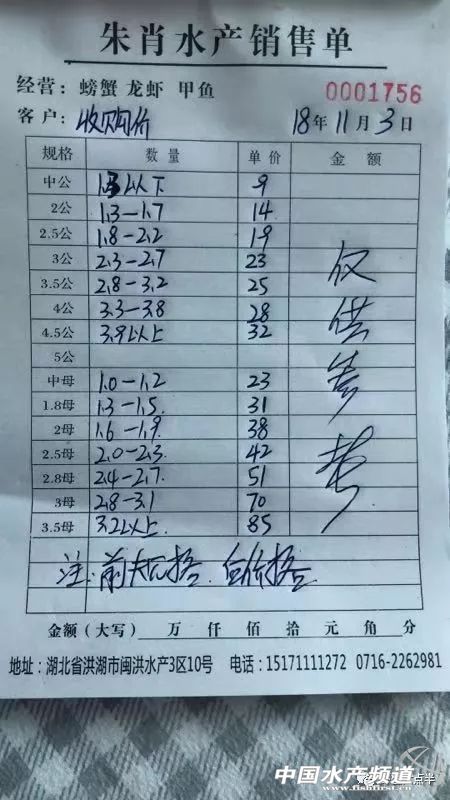 朱肖水产销售单
经营：螃蟹 龙虾 甲鱼 0001756
客户：收购价 18年11月3日
规格 数量 单价 金额
中公 1.3以下 9
2公 1.3-1.7 14
2.5公 1.8-2.2 19
3公 2.3-2.7 23
3.5公 2.8-3.2 25
4公 3.3-3.8 28
4.5公 3.9以上 32
5公
中母 1.0-1.2 23
1.8母 1.3-1.5 31
2母 1.6-1.9 38
2.5母 2.0-2.3 42
2.8母 2.4-2.7 51
3母 2.8-3.1 70
3.5母 3.2以上 85
仅供参考
注：前
金额（大写） 万 仟 佰 拾 元 角 分
地址：湖北省洪湖市闽洪水产3区10号 电话：15171111272 0716-2262981
中国水产频道
www.fishfirst.cn
点半